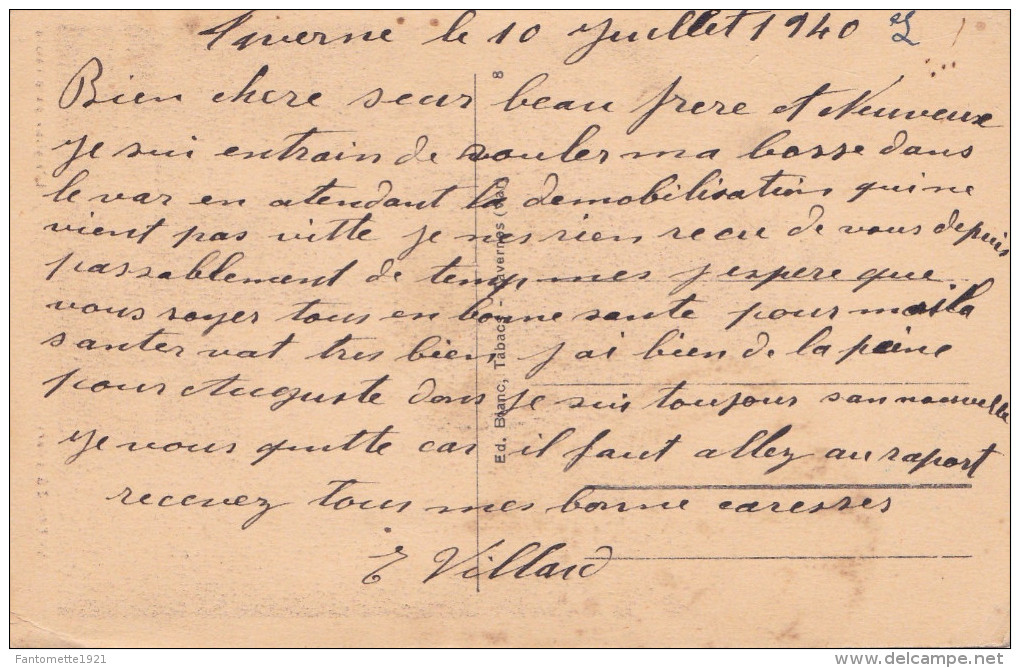 Taverne le 10 Juillet 1940
Bien chere seur beau frere et Neuveux
je sui entrain de rouler ma bosse dans
le var en atendant la demobilisation qui ne
vient pas vitte je nes rien recu de vous depuis
passablement de temp mes j espere que
vous soyer tous en bonne sante pour moi la
santer vat tres bien j ai bien de la peine
pour Auguste dons je suis toujour san nouvelle
je vous quitte car il faut allez au raport
recevez tous mes bonne caresses
E Villard
8
Ed. Blanc, Tabacs - Tavernes (Var)
Fantomette1921
delcampe.net